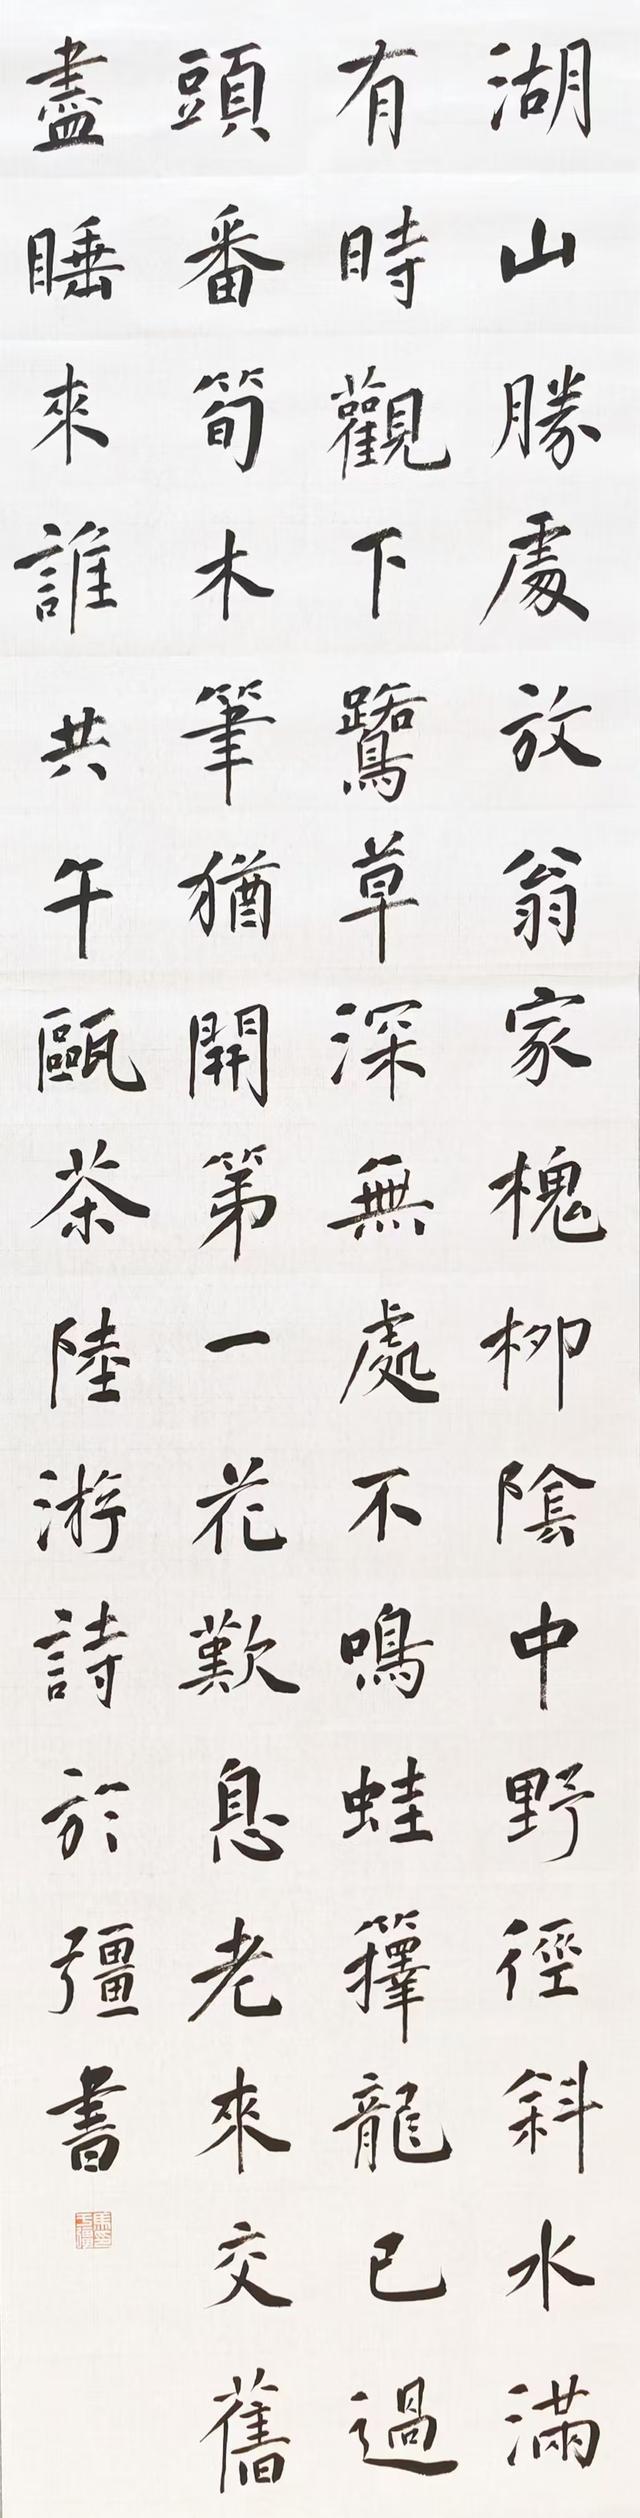 湖山勝處放翁家槐柳陰中野徑斜水滿
有時觀下鷺草深無處不鳴蛙籜龍已過
頭番筍木筆猶開第一花歎息老來交舊
盡睡來誰共午甌茶陸游詩於彊書